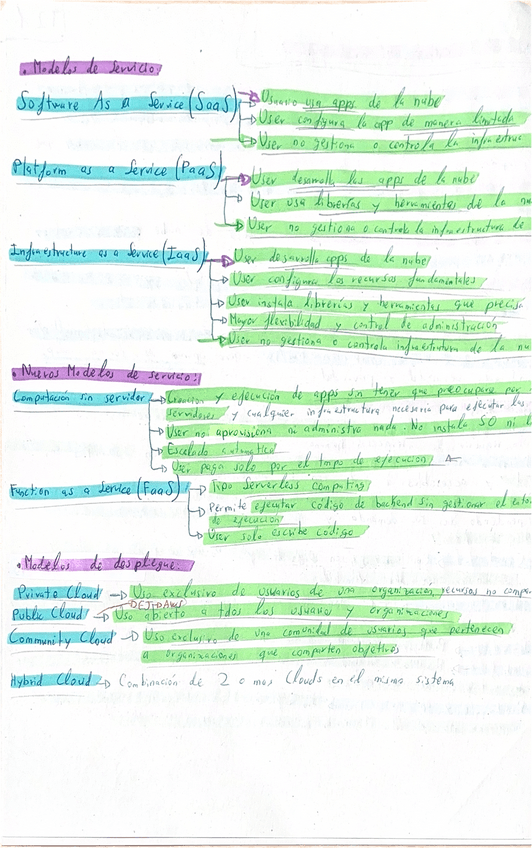 • Modelos de servicio:
Software As a Service (SaaS) → Usuario usa apps de la nube
→ User configura la app de manera limitada
→ User no gestiona o controla la infraestruc
Platform as a Service (PaaS) → User desarrolla las apps de la nube
→ User usa librerías y herramientas de la nu
→ User no gestiona o controla la infraestructura de
Infraestructure as a Service (IaaS) → User desarrolla apps de la nube
→ User configura los recursos fundamentales
→ User instala librerías y herramientas que precisa
→ Mayor flexibilidad y control de administración
→ User no gestiona o controla infraestrutura de la nu
• Nuevos Modelos de servicio:
Computación sin servidor → Creación y ejecución de apps sin tener que preocuparse por
servidores y cualquier infraestructura necesaria para ejecutar las
→ User no aprovisiona ni administra nada. No instala SO ni l
→ Escalado automatico
→ User paga solo por el tmpo de ejecucion
Function as a Service (FaaS) → Tipo Serverless computing
→ Permite ejecutar código de backend sin gestionar el
de ejecución
→ User solo escribe código
• Modelos de despliegue:
Private Cloud → Uso exclusivo de usuarios de una organización, recursos no compa
Public Cloud → Uso abierto a tdos los usuarios y organizaciones
Community Cloud → Uso exclusivo de una comunidad de usuarios que pertenecen
a organizaciones que comparten objetivos
Hybrid Cloud → Combinación de 2 o mas Clouds en el mismo sistema